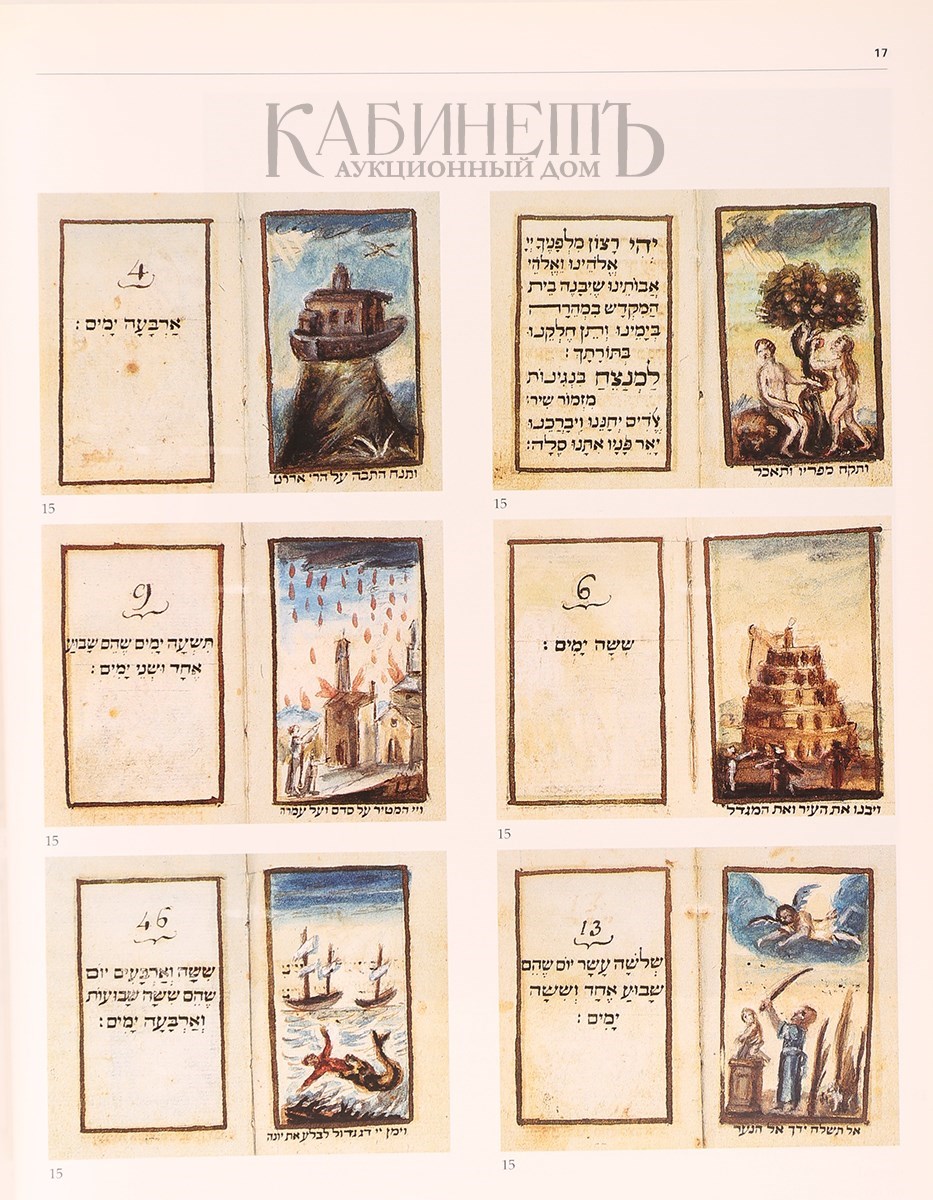 17
КАБИНЕТЪ
АУКЦИОННЫЙ ДОМ
4
אַרְבָּעָה יָמִים :
ותנח התבה על הרי אררט
15
יְהִי רָצוֹן מִלְּפָנֶיךָ יְיָ
אֱלֹהֵינוּ וֵאלֹהֵי
אֲבוֹתֵינוּ שֶׁיִּבָּנֶה בֵּית
הַמִּקְדָּשׁ בִּמְהֵרָה
בְיָמֵינוּ וְתֵן חֶלְקֵנוּ
בְּתוֹרָתֶךָ :
לַמְנַצֵּחַ בִּנְגִינוֹת
מִזְמוֹר שִׁיר:
אֱלֹהִים יְחָנֵּנוּ וִיבָרְכֵנוּ
יָאֵר פָּנָיו אִתָּנוּ סֶלָה:
ותקח מפריו ותאכל
15
9
תִּשְׁעָה יָמִים שֶׁהֵם שָׁבוּעַ
אֶחָד וּשְׁנֵי יָמִים :
ויי המטיר על סדם ועל עמרה
15
6
שִׁשָּׁה יָמִים :
ויבנו את העיר ואת המגדל
15
46
שִׁשָּׁה וְאַרְבָּעִים יוֹם
שֶׁהֵם שִׁשָּׁה שָׁבוּעוֹת
וְאַרְבָּעָה יָמִים :
וימן יי דג גדול לבלע את יונה
15
13
שְׁלֹשָׁה עָשָׂר יוֹם שֶׁהֵם
שָׁבוּעַ אֶחָד וְשִׁשָּׁה
יָמִים :
אל תשלח ידך אל הנער
15